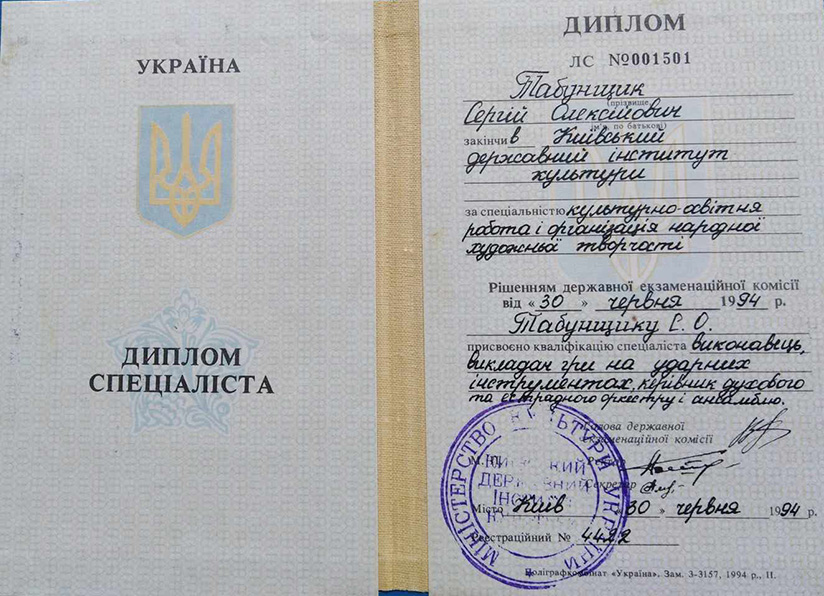 УКРАЇНА
ДИПЛОМ
СПЕЦІАЛІСТА
ДИПЛОМ
ЛС №001501
Табунщик
(прізвище,
Сергій Олексійович
по батькові)
закінчив Київський
державний інститут
культури
за спеціальністю культурно-освітня
робота і організація народної
художньої творчості
Рішенням державної екзаменаційної комісії
від «30» червня 1994 р.
Табунщику С. О.
присвоєно кваліфікацію спеціаліста виконавець,
викладач гри на ударних
інструментах, керівник духового
та естрадного оркестру і ансамблю.
Голова державної
екзаменаційної комісії
М.П. Ректор
Секретар
Місто Київ «30» червня 1994 р.
Реєстраційний № 4422
МІНІСТЕРСТВО КУЛЬТУРИ УКРАЇНИ
КИЇВСЬКИЙ
ДЕРЖАВНИЙ
Поліграфкомбінат «Україна». Зам. 3-3157, 1994 р., II.